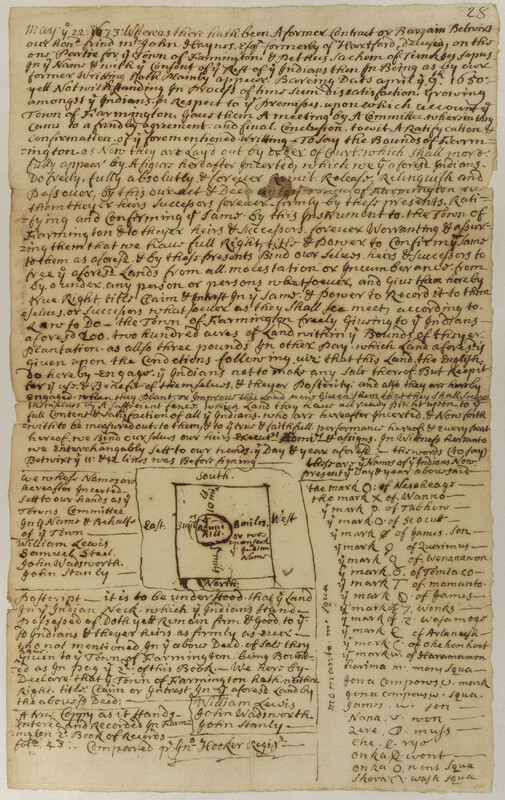 28
May yͤ 22: 1673: Whereas there hath been A former Contract or Bargain Betwixt
our Honᵈ frind mʳ John Haynes, Esqʳ formerly of Hartford, on the
one Partie for yͤ Town of Farmington; & Pethus Sachem of Tunxses Sepus
In yͤ Name & with yͤ Consent of yͤ Rest of yͤ Indians then In Being as by our
former Writting Doth Plainly apeer Baring Date april yͤ 9ᵗʰ 1650:
yett Notwithstanding In Process of time Sum dissatisfaction growing
amongst yͤ Indians In Respect to yͤ Premises upon which account yͤ
Town of Farmington Gave them A meeting by A Committee wherein they
Came to a frindly agreement and final Conclusion to wit A Ratification &
Confirmation of yͤ forementioned Writting To Say the Bounds of Farm-
ington as Now they are Layd out by order of Court which Shall more
fully appear by A figur hereafter Incerted, which we yͤ afores Indians
Do freely, fully absolutly & forever Remit, Release, Relinquish and
Pass over, by this our act & Deed Town of Farmington to
them theyer heirs Successors forever firmly by these presents, Rati-
fying and Confirming yͤ Same by this Instrument to the Town of
Farmington & to theyer heirs & Successors forever Warranting & assur-
ing them that we have full Right, title & Power to Confirm yͤ Same
to them as aforesᵈ & by these presents Bind our Selves heirs & Successors to
free yͤ aforesᵈ Lands from all molestation or Incumberance from
by or under any person or persons whatsoever, and Give them hereby
true Right title Claim & Intrest In yͤ Same & power to Record it to them
Selves, or Successors whatsoever as they Shall See meet, according to
Law to Do — the Town of Farmington freely Giving to yͤ Indians
aforesᵈ 200. two hundred acres of Land within yͤ Bounds of theyer
Plantation: as allso three pounds In other pay, which Land aforesᵈ is
given upon the Conditions following viz: that this Land the English
do hereby Engage yͤ Indians not to make any Sale thereof But Keep it
for yͤ use & Benefit of themselves, & theyer Posterity: and allso they are hereby
engaged when they plant or Improve this Land
themselves by A Sufficient fence, which Land they have already pitched upon to the
full Content & Satisfaction of all yͤ Indians, who are hereafter Incerted, & Now forth
with to be measured out to them & to yͤ true & faithfull performance hereof & every part
hereof, we Bind our Selves our heirs Execuʳˢ Adminʳˢ & asigns. In Witness hereunto
we Interchangably Sett to our hands yͤ Day & year aforesᵈ — these words (to say)
Betwixt yͤ 11: & 12 Lines was Before Signing
We whose Names are
hereafter Incerted
Sett to our hands as yͤ
Towns Committee
In yͤ Name & Behalfe
of yͤ Town
William Lewis
Samuel Steel
John Wadsworth
John Stanly
South
East.
Round
Hill
8 miles
West
North
these are yͤ Names of yͤ Indians Now
present yͤ Day & year abovesaid
the mark O: of Nesaheagē
the mark X of Wanno
yͤ mark P. of Tabhow
yͤ mark O: of Seocut
yͤ mark of James. Son
yͤ mark of Querimus
yͤ mark of Wenanewon
yͤ mark of Tomtaco
yͤ mark T of momanto.
yͤ mark of James
yͤ mark of 7. Wonks
yͤ mark of 2 Wasamogs
yͤ mark of Arlanesh
yͤ mark of Okenkoot
yͤ mark of
momanto m. Squa
Jona Compows. mark
Jona compows. Squa.
James. son
Nana. von
Onka O. wont
Onka O. nont Squa
Skora wash squa
Postscript — it is to be understood that yͤ Land
In yͤ Indian Neck which yͤ Indians Stand
possessed of Doth yett Remain firm & Good to yͤ
Sᵈ Indians & theyer heirs as firmly as ever
tho not mentioned In yͤ above Deed of Sale they
have Given to yͤ Town of Farmington. Being Bound-
ed as In pag yͤ 2ᵈ of this Book — We hereby
Declare that yͤ Town of Farmington hath neither
Right. title. Claim or Intrest In yͤ aforesᵈ Land by
the abovesᵈ Deed:
William Lewis
John Wadsworth
John Stanly
A true Coppy as it Stands
Entered and Recorded In Farm-
ington 2ᵈ Book of Records
folᵒ 43: Compared pʳ Jnᵒ Hooker Regisʳ